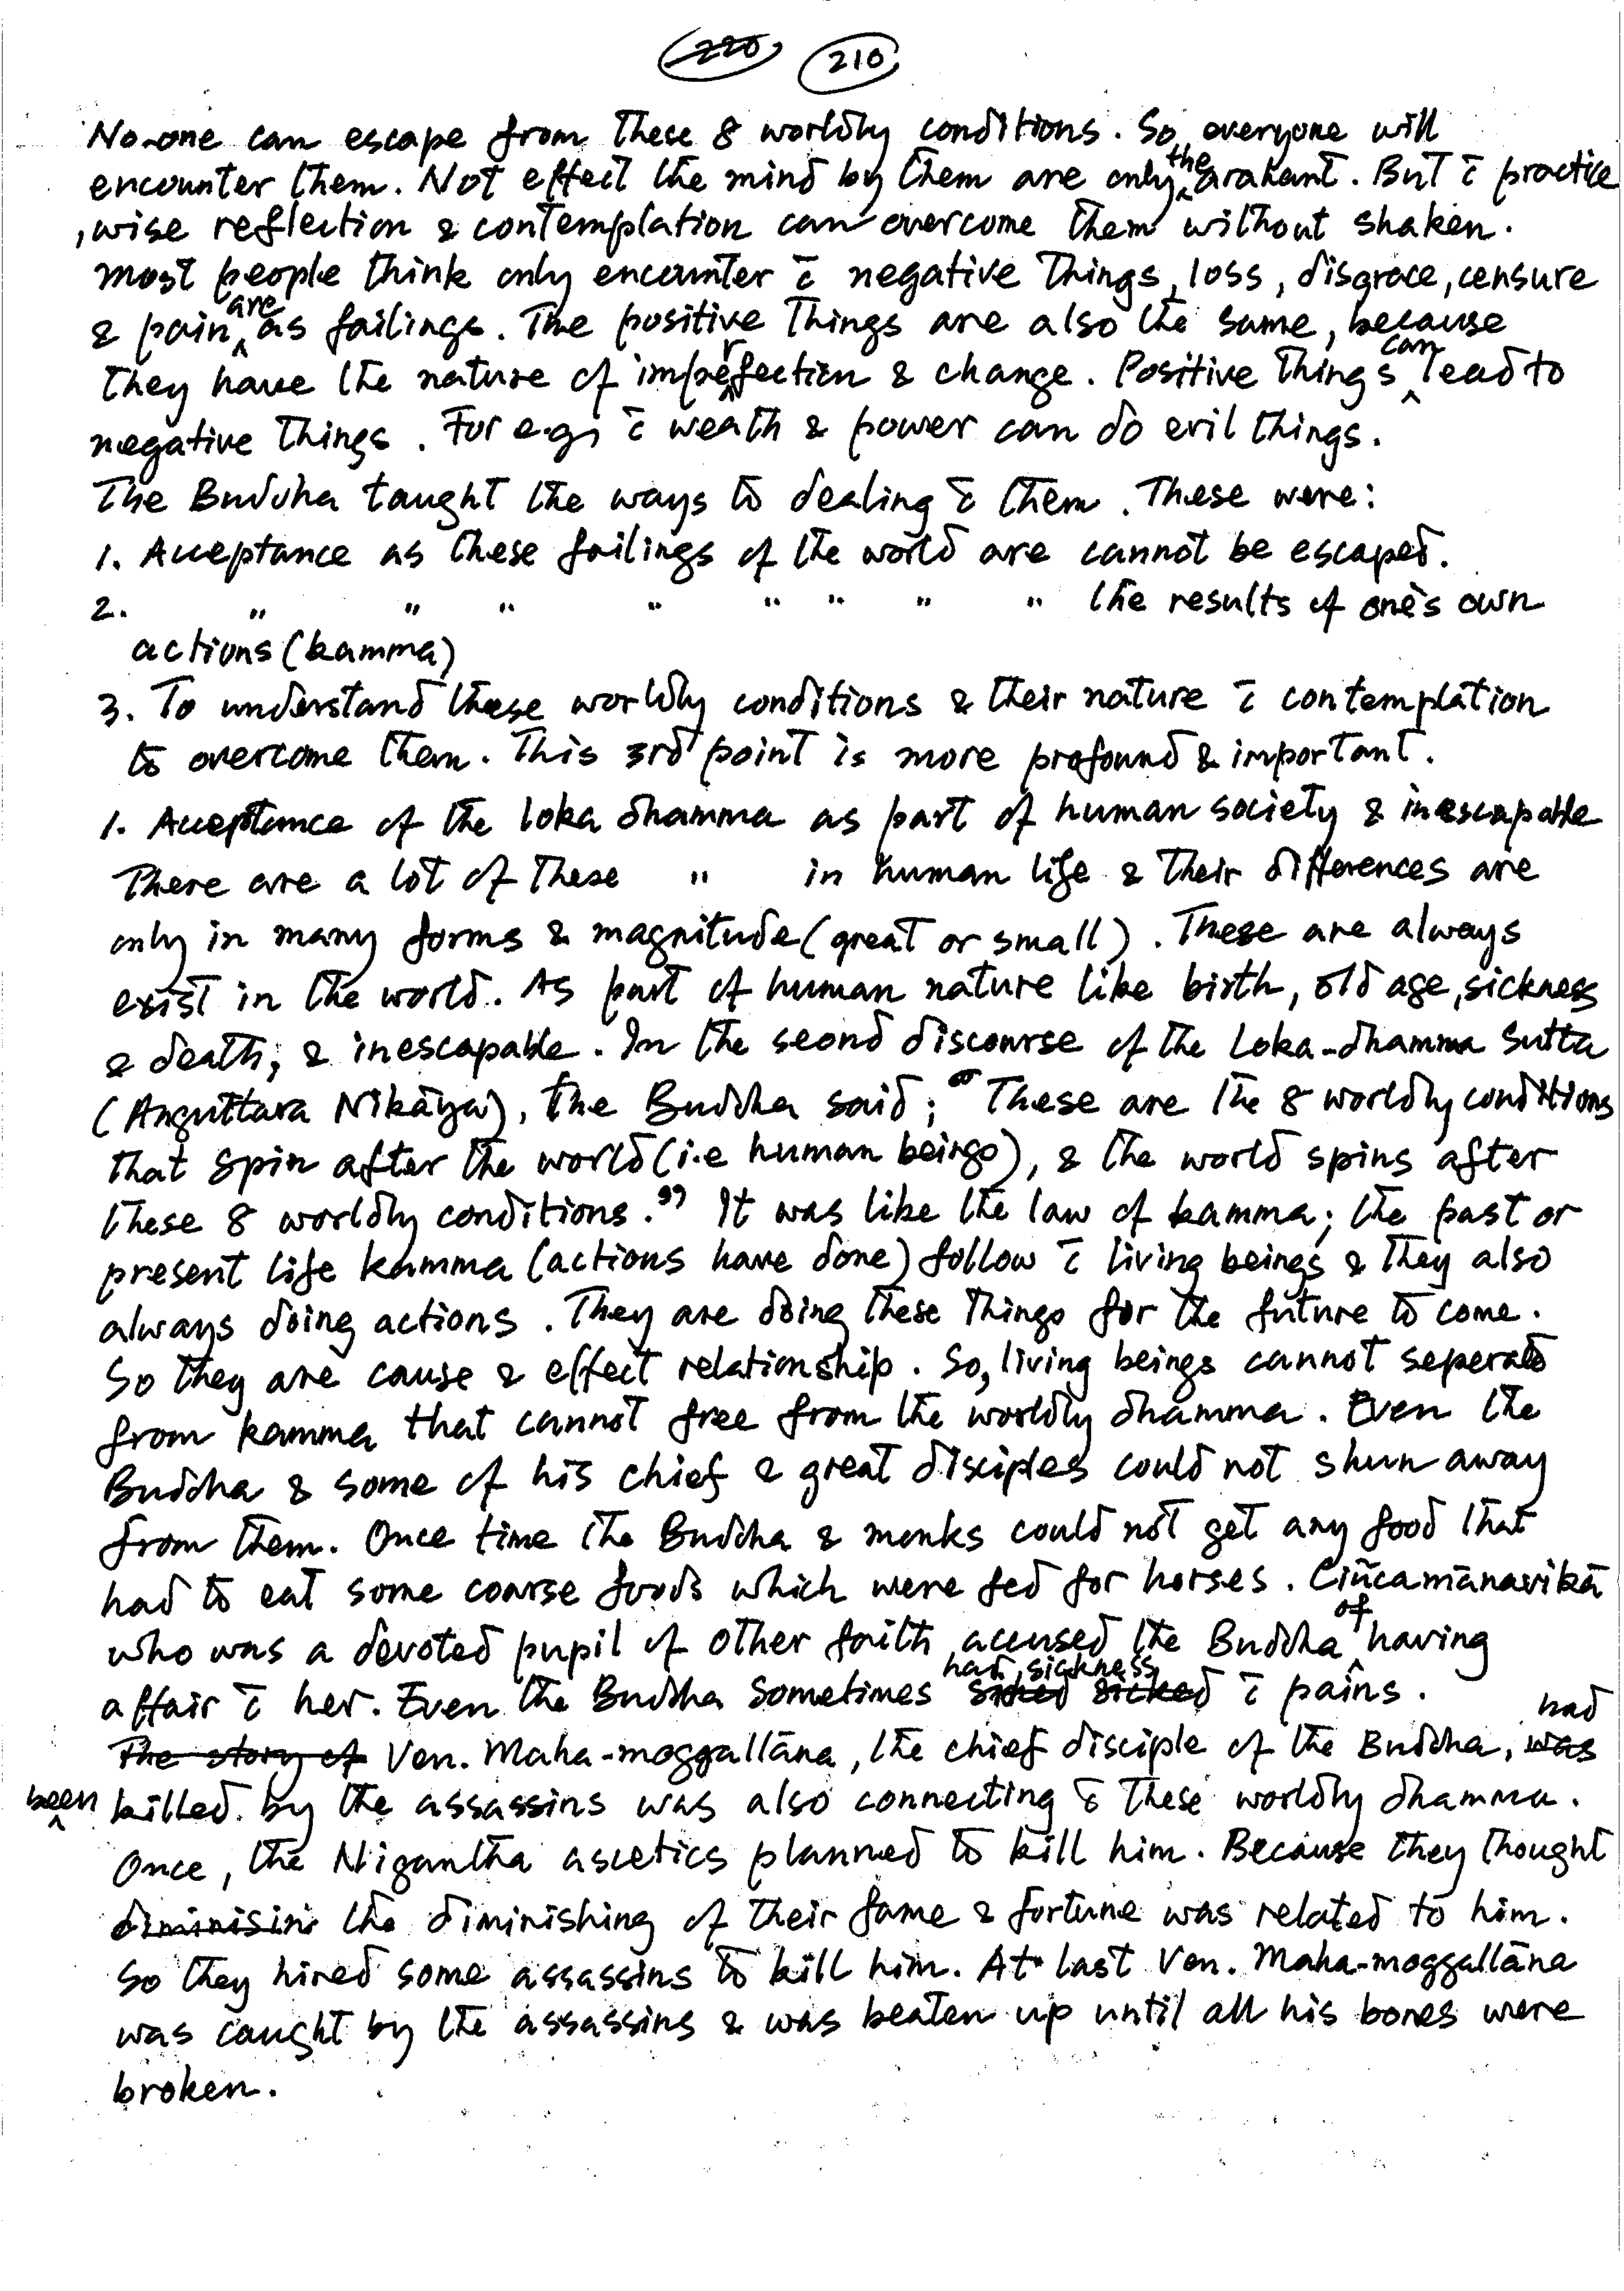 220 210
No-one can escape from these 8 worldly conditions. So, everyone will
encounter them. Not effect the mind by them are only the arahant. But c̄ practice
, wise reflection & contemplation can overcome them without shaken.
most people think only encounter c̄ negative things, loss, disgrace, censure
& pain are as failings. The positive things are also the same, because
they have the nature of imperfection & change. Positive things can lead to
negative things. For e.g, c̄ weath & power can do evil things.
The Buddha taught the ways to dealing c̄ them. These were:
1. Acceptance as these failings of the world are cannot be escaped.
2. " " " " " " " " the results of one's own
actions (kamma)
3. To understand these worldly conditions & their nature c̄ contemplation
to overcome them. This 3rd point is more profound & important.
1. Acceptance of the loka dhamma as part of human society & inescapable
There are a lot of these " in human life & their differences are
only in many forms & magnitude (great or small). These are always
exist in the world. As part of human nature like birth, old age, sickness
& death; & inescapable. In the seond discourse of the Loka-dhamma Sutta
(Anguttara Nikāya), the Buddha said; "These are the 8 worldly conditions
that spin after the world (i.e human beings), & the world spins after
these 8 worldly conditions." It was like the law of kamma; the past or
present life kamma (actions have done) follow c̄ living beings & they also
always doing actions. They are doing these things for the future to come.
So they are cause & effect relationship. So, living beings cannot seperate
from kamma that cannot free from the worldly dhamma. Even the
Buddha & some of his chief & great disciples could not shun away
from them. Once time the Buddha & monks could not get any food that
had to eat some coarse foods which were fed for horses. Ciñcamānavikā
who was a devoted pupil of other faith accused the Buddha of having
affair c̄ her. Even the Buddha sometimes had sickness c̄ pains.
The story of Ven. Maha-moggallāna, the chief disciple of the Buddha, was had
been killed by the assassins was also connecting to these worldly dhamma.
Once, the Nigantha ascetics planned to kill him. Because they thought
diminisin the diminishing of their fame & fortune was related to him.
So they hired some assassins to kill him. At last Ven. Maha-moggallāna
was caught by the assassins & was beaten up until all his bones were
broken.